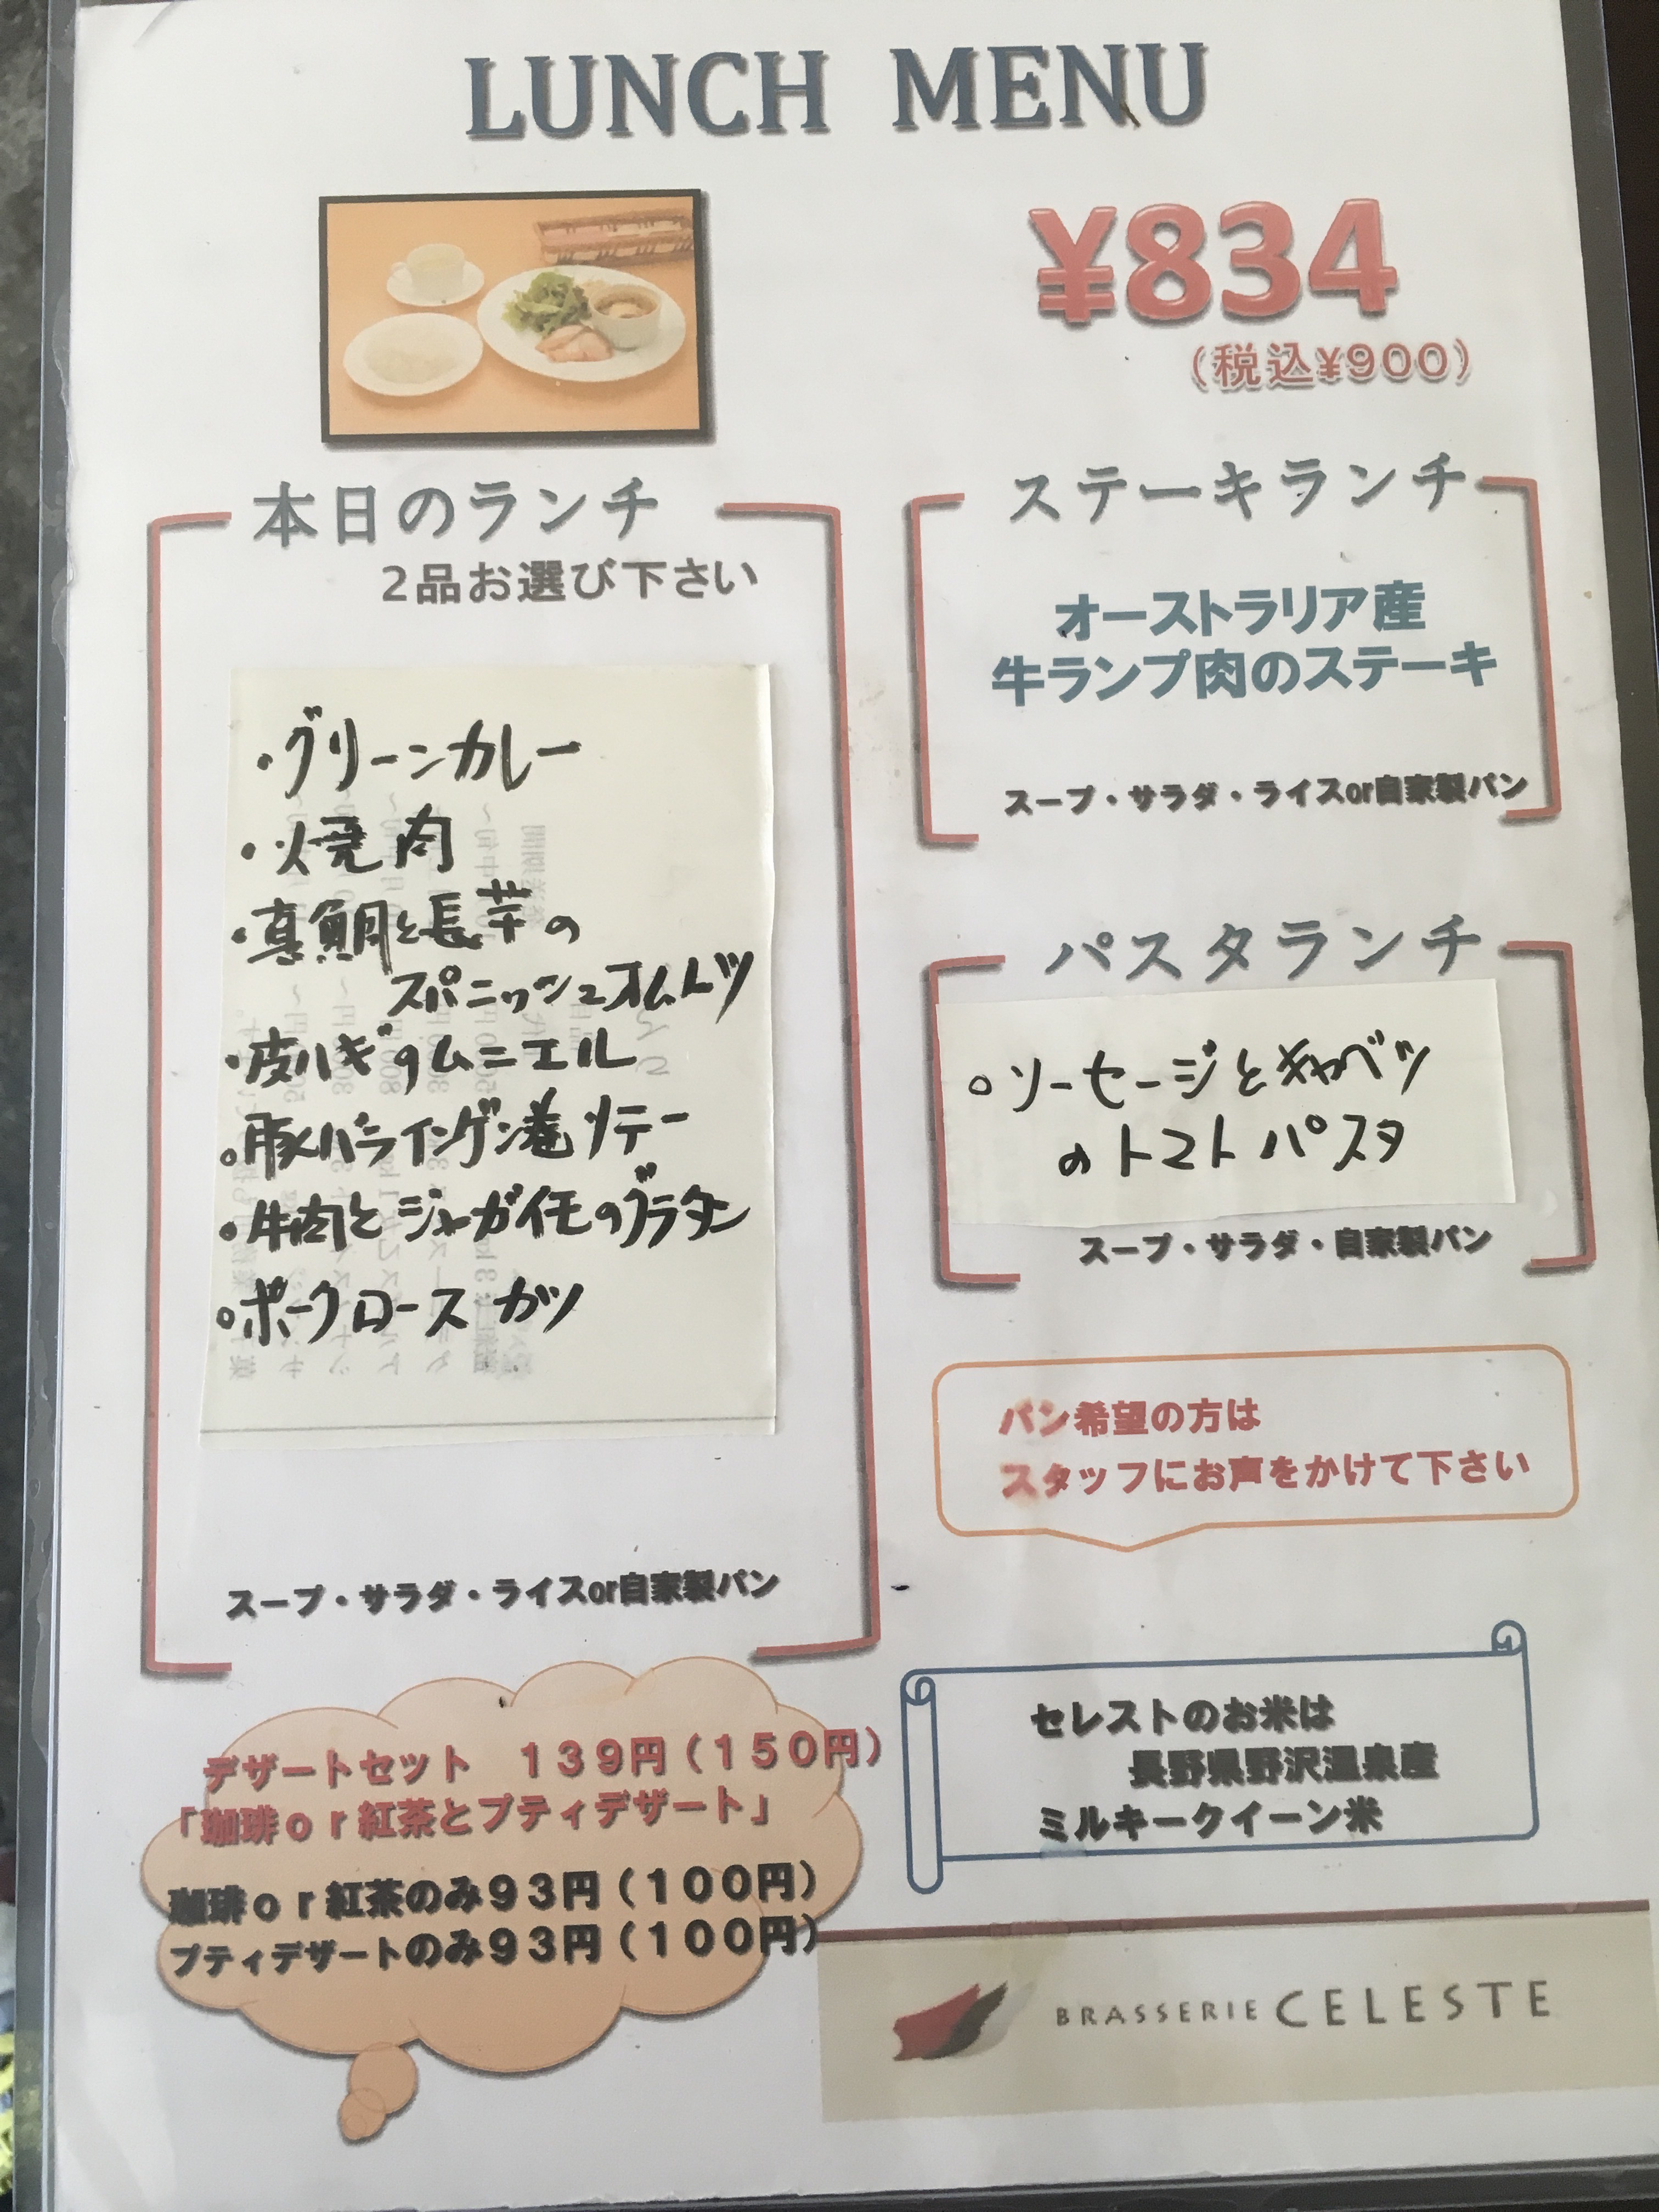 LUNCH MENU
¥834
(税込¥900)
本日のランチ
2品お選び下さい
・グリーンカレー
・焼肉
・真鯛と長芋の
スパニッシュオムレツ
・皮ハギのムニエル
。豚バライインゲン巻ソテー
。牛肉とジャガイモのグラタン
。ポークロースカツ
スープ・サラダ・ライスor自家製パン
ステーキランチ
オーストラリア産
牛ランプ肉のステーキ
スープ・サラダ・ライスor自家製パン
パスタランチ
。ソーセージとキャベツ
のトマトパスタ
スープ・サラダ・自家製パン
パン希望の方は
スタッフにお声をかけて下さい
デザートセット　139円(150円)
「珈琲or紅茶とプティデザート」
珈琲or紅茶のみ93円(100円)
プティデザートのみ93円(100円)
セレストのお米は
長野県野沢温泉産
ミルキークイーン米
BRASSERIE CELESTE